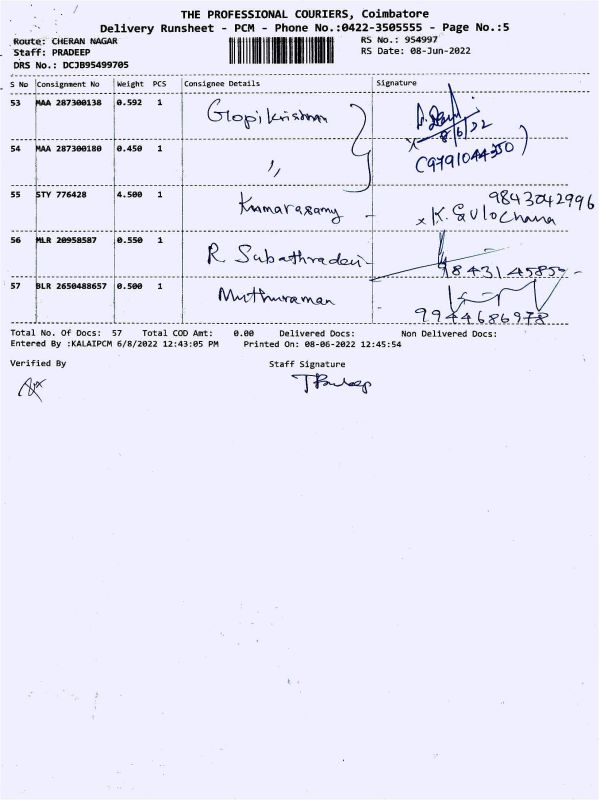 THE PROFESSIONAL COURIERS, Coimbatore
Delivery Runsheet - PCM - Phone No.:0422-3505555 - Page No.:5
Route: CHERAN NAGAR RS No.: 954997
Staff: PRADEEP RS Date: 08-Jun-2022
DRS No.: DCJB95499705
S No Consignment No Weight PCS Consignee Details Signature
53 MAA 287300138 0.592 1 Gopikrishnan
8/6/22
54 MAA 287300180 0.450 1 " (9791044350)
55 STY 776428 4.500 1 Kumarasamy - 9843042996
x K. Sulochana
56 MLR 20958587 0.550 1 R. Subathradevi - 9843145855
57 BLR 2650488657 0.500 1 Muthuraman
9944686978
Total No. Of Docs: 57 Total COD Amt: 0.00 Delivered Docs: Non Delivered Docs:
Entered By :KALAIPCM 6/8/2022 12:43:05 PM Printed On: 08-06-2022 12:45:54
Verified By Staff Signature